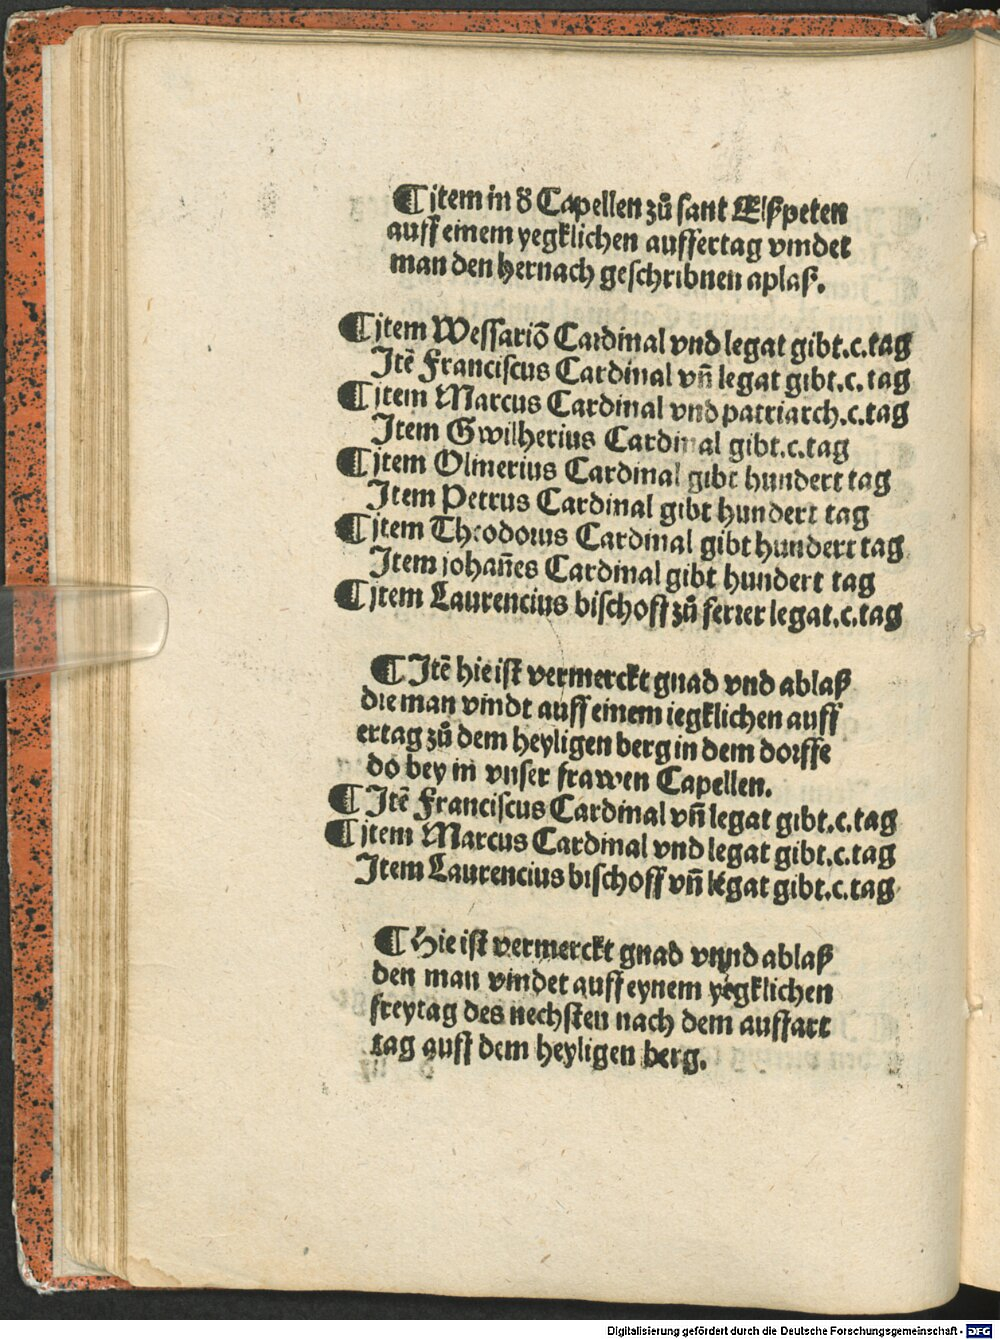 ¶ item in d̕ Capellen zů sant Elßpeten
auff einem yegklichen auffertag vindet
man den hernach geschribnen aplaß.
¶ item Wessariō Cardinal vnd legat gibt.c.tag
Itē Franciscus Cardinal vn̄ legat gibt.c.tag
¶ item Marcus Cardinal vnd patriarch.c.tag
Item Gwilherius Cardinal gibt.c.tag
¶ item Oliuerius Cardinal gibt hundert tag
Item Petrus Cardinal gibt hundert tag
¶ item Theodorus Cardinal gibt hundert tag
Item johan̄es Cardinal gibt hundert tag
¶ item Laurencius bischoff zů ferrer legat.c.tag
¶ Itē hie ist vermerckt gnad vnd ablaß
die man vindt auff einem iegklichen auff
ertag zů dem heyligen berg in dem dorffe
do bey in vnser frawen Capellen.
¶ Itē Franciscus Cardinal vn̄ legat gibt.c.tag
¶ item Marcus Cardinal vnd legat gibt.c.tag
Item Laurencius bischoff vn̄ legat gibt.c.tag
¶ Hie ist vermerckt gnad vnnd ablaß
den man vindet auff eynem yegklichen
freytag des nechsten nach dem auffart
tag auff dem heyligen berg.
Digitalisierung gefördert durch die Deutsche Forschungsgemeinschaft - DFG